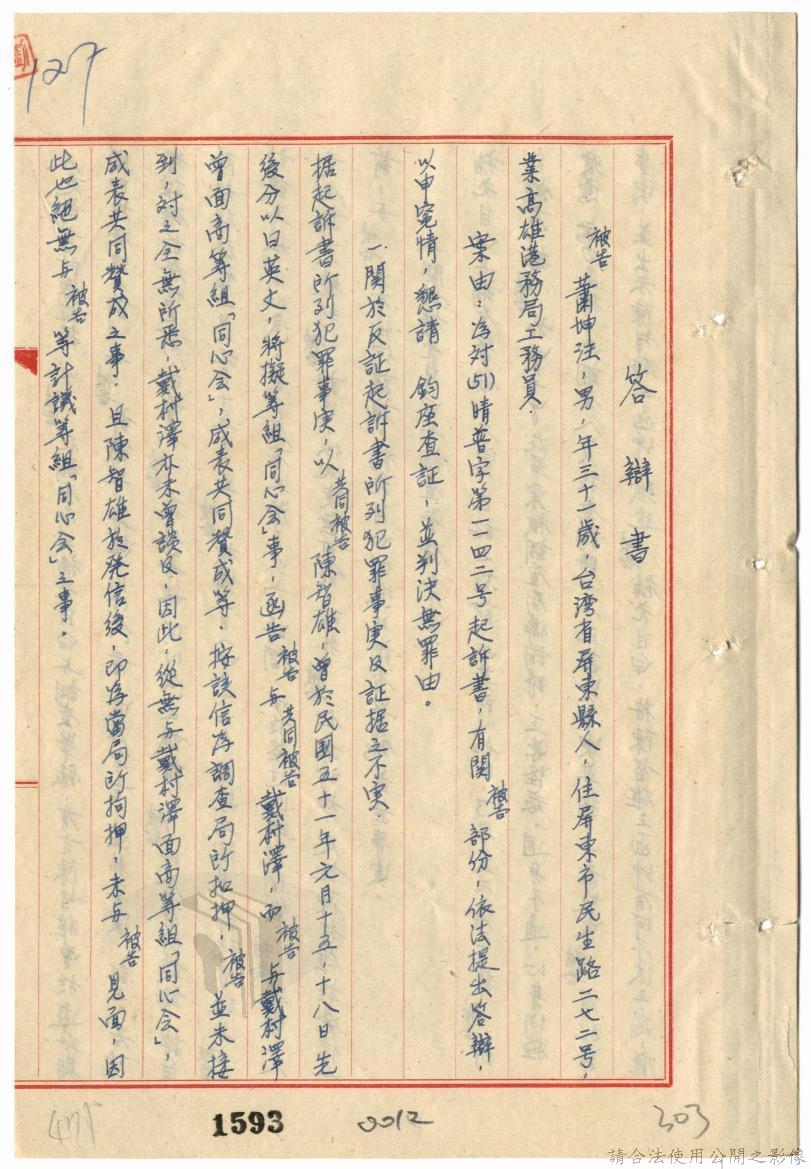 127
答辯書
被告 蕭坤旺,男,年三十一歲,台湾省屏東縣人,住屏東市民生路二七二号,
業高雄港務局工務員.
案由:為対(51)晴普字第一一四二号起訴書,有関被告部份,依法提出答辯,
以申寃情,懇請 鈞座查証,並判決無罪由。
一.関於反証起訴書所列犯罪事実及証据之不実.
据起訴書所列犯罪事実,以共同被告陳智雄,曾於民国五十一年元月十五,十八日先
後分以日英文,将擬筹組「同心会」事,函告被告与共同被告戴村澤,而被告与戴村澤
曾面商筹組「同心会」,咸表共同賛成等.按該信為調查局所扣押,被告並未接
到,対之全無所悉,戴村澤亦未曾談及,因此,從無与戴村澤面商筹組「同心会」,
咸表共同賛成之事.且陳智雄於発信後,即為當局所拘押,未与被告見面,因
此也絕無与被告等計議筹組「同心会」之事.
477
1593
0012
303
請合法使用公開之影像